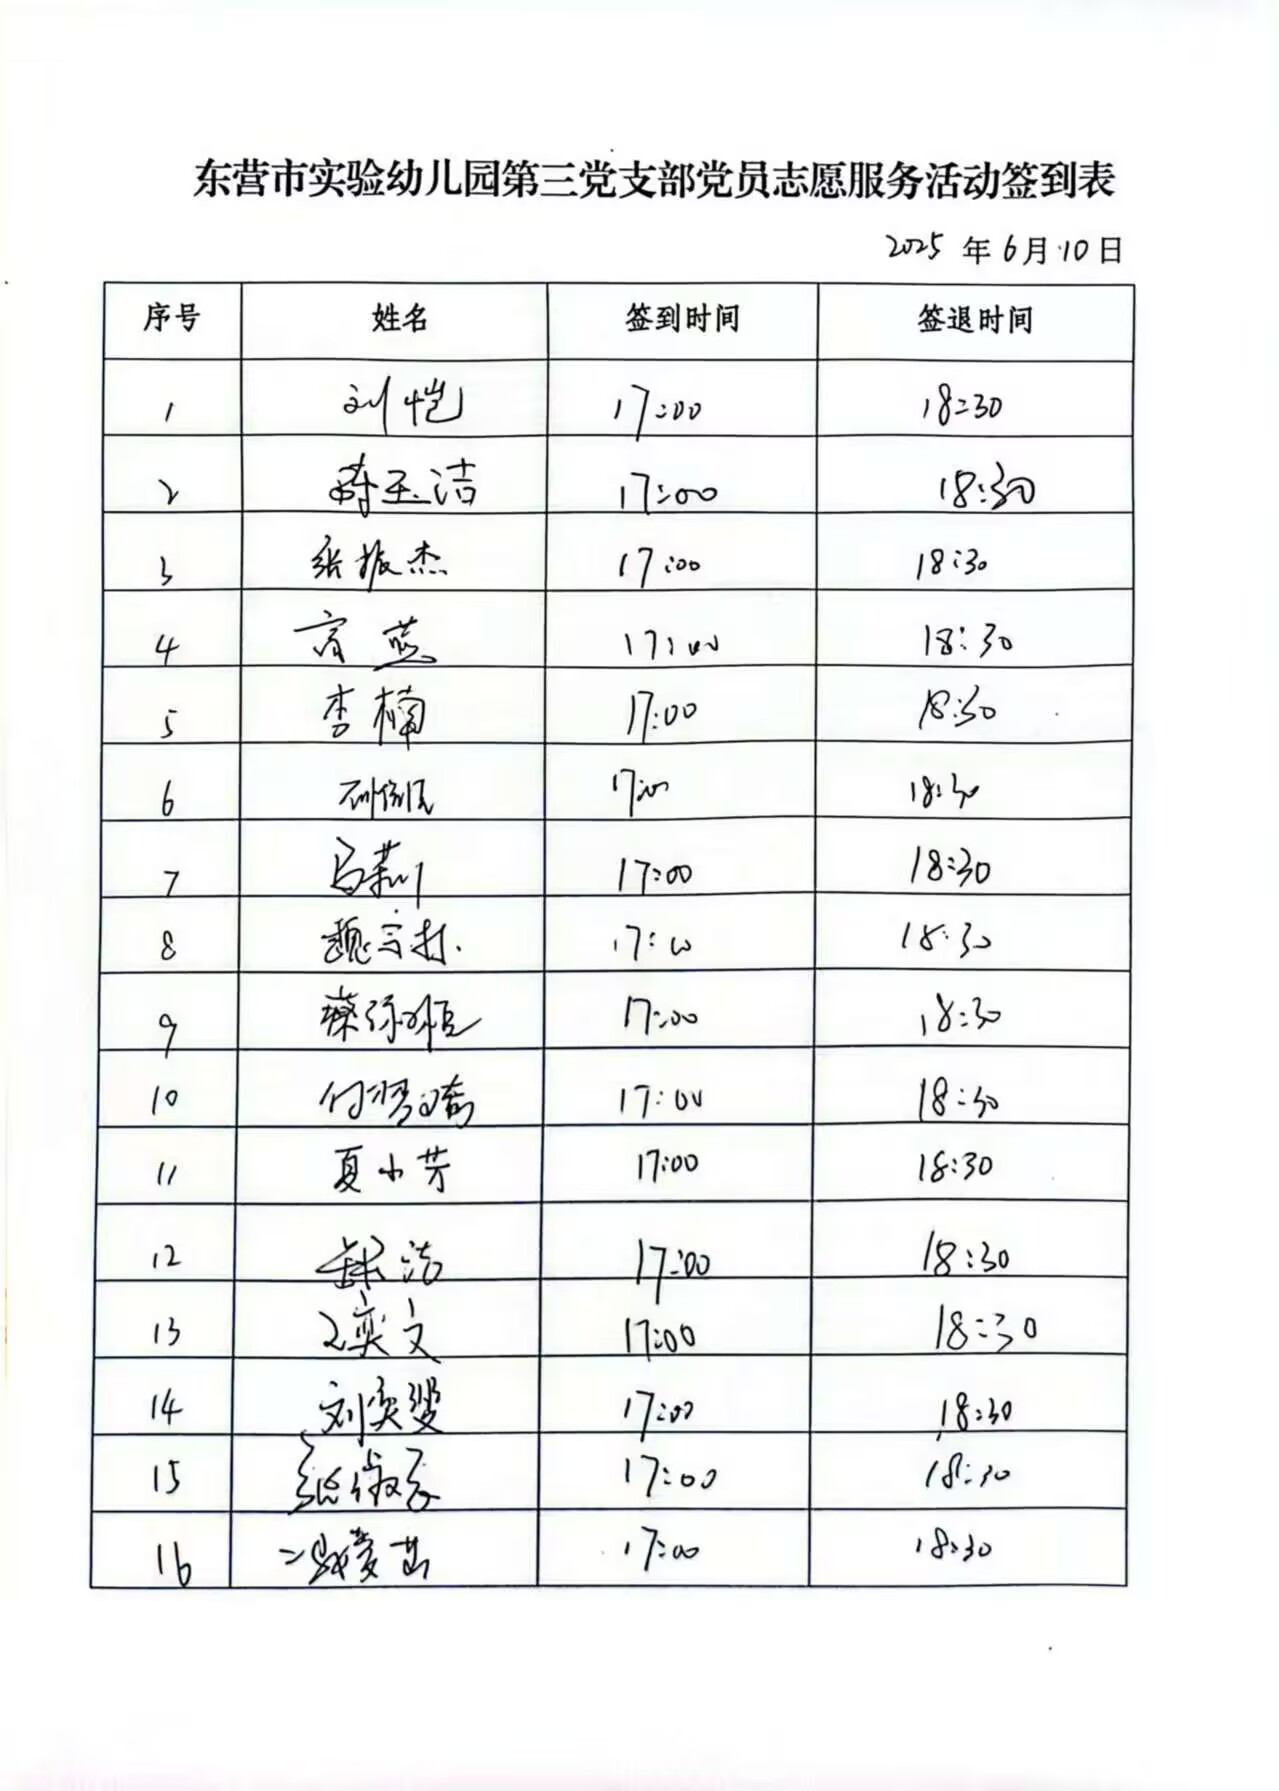 东营市实验幼儿园第三党支部党员志愿服务活动签到表
2025 年 6 月 10 日
序号 姓名 签到时间 签退时间
1 刘恺 17:00 18:30
2 蒋玉洁 17:00 18:30
3 张振杰 17:00 18:30
4 蓝 17:00 18:30
5 李楠 17:00 18:30
6 17:00 18:30
7 马莉 17:00 18:30
8 魏 17:00 18:30
9 蔡 17:00 18:30
10 付 17:00 18:30
11 夏小芳 17:00 18:30
12 洁 17:00 18:30
13 王奕文 17:00 18:30
14 刘奕 17:00 18:30
15 张 17:00 18:30
16 17:00 18:30